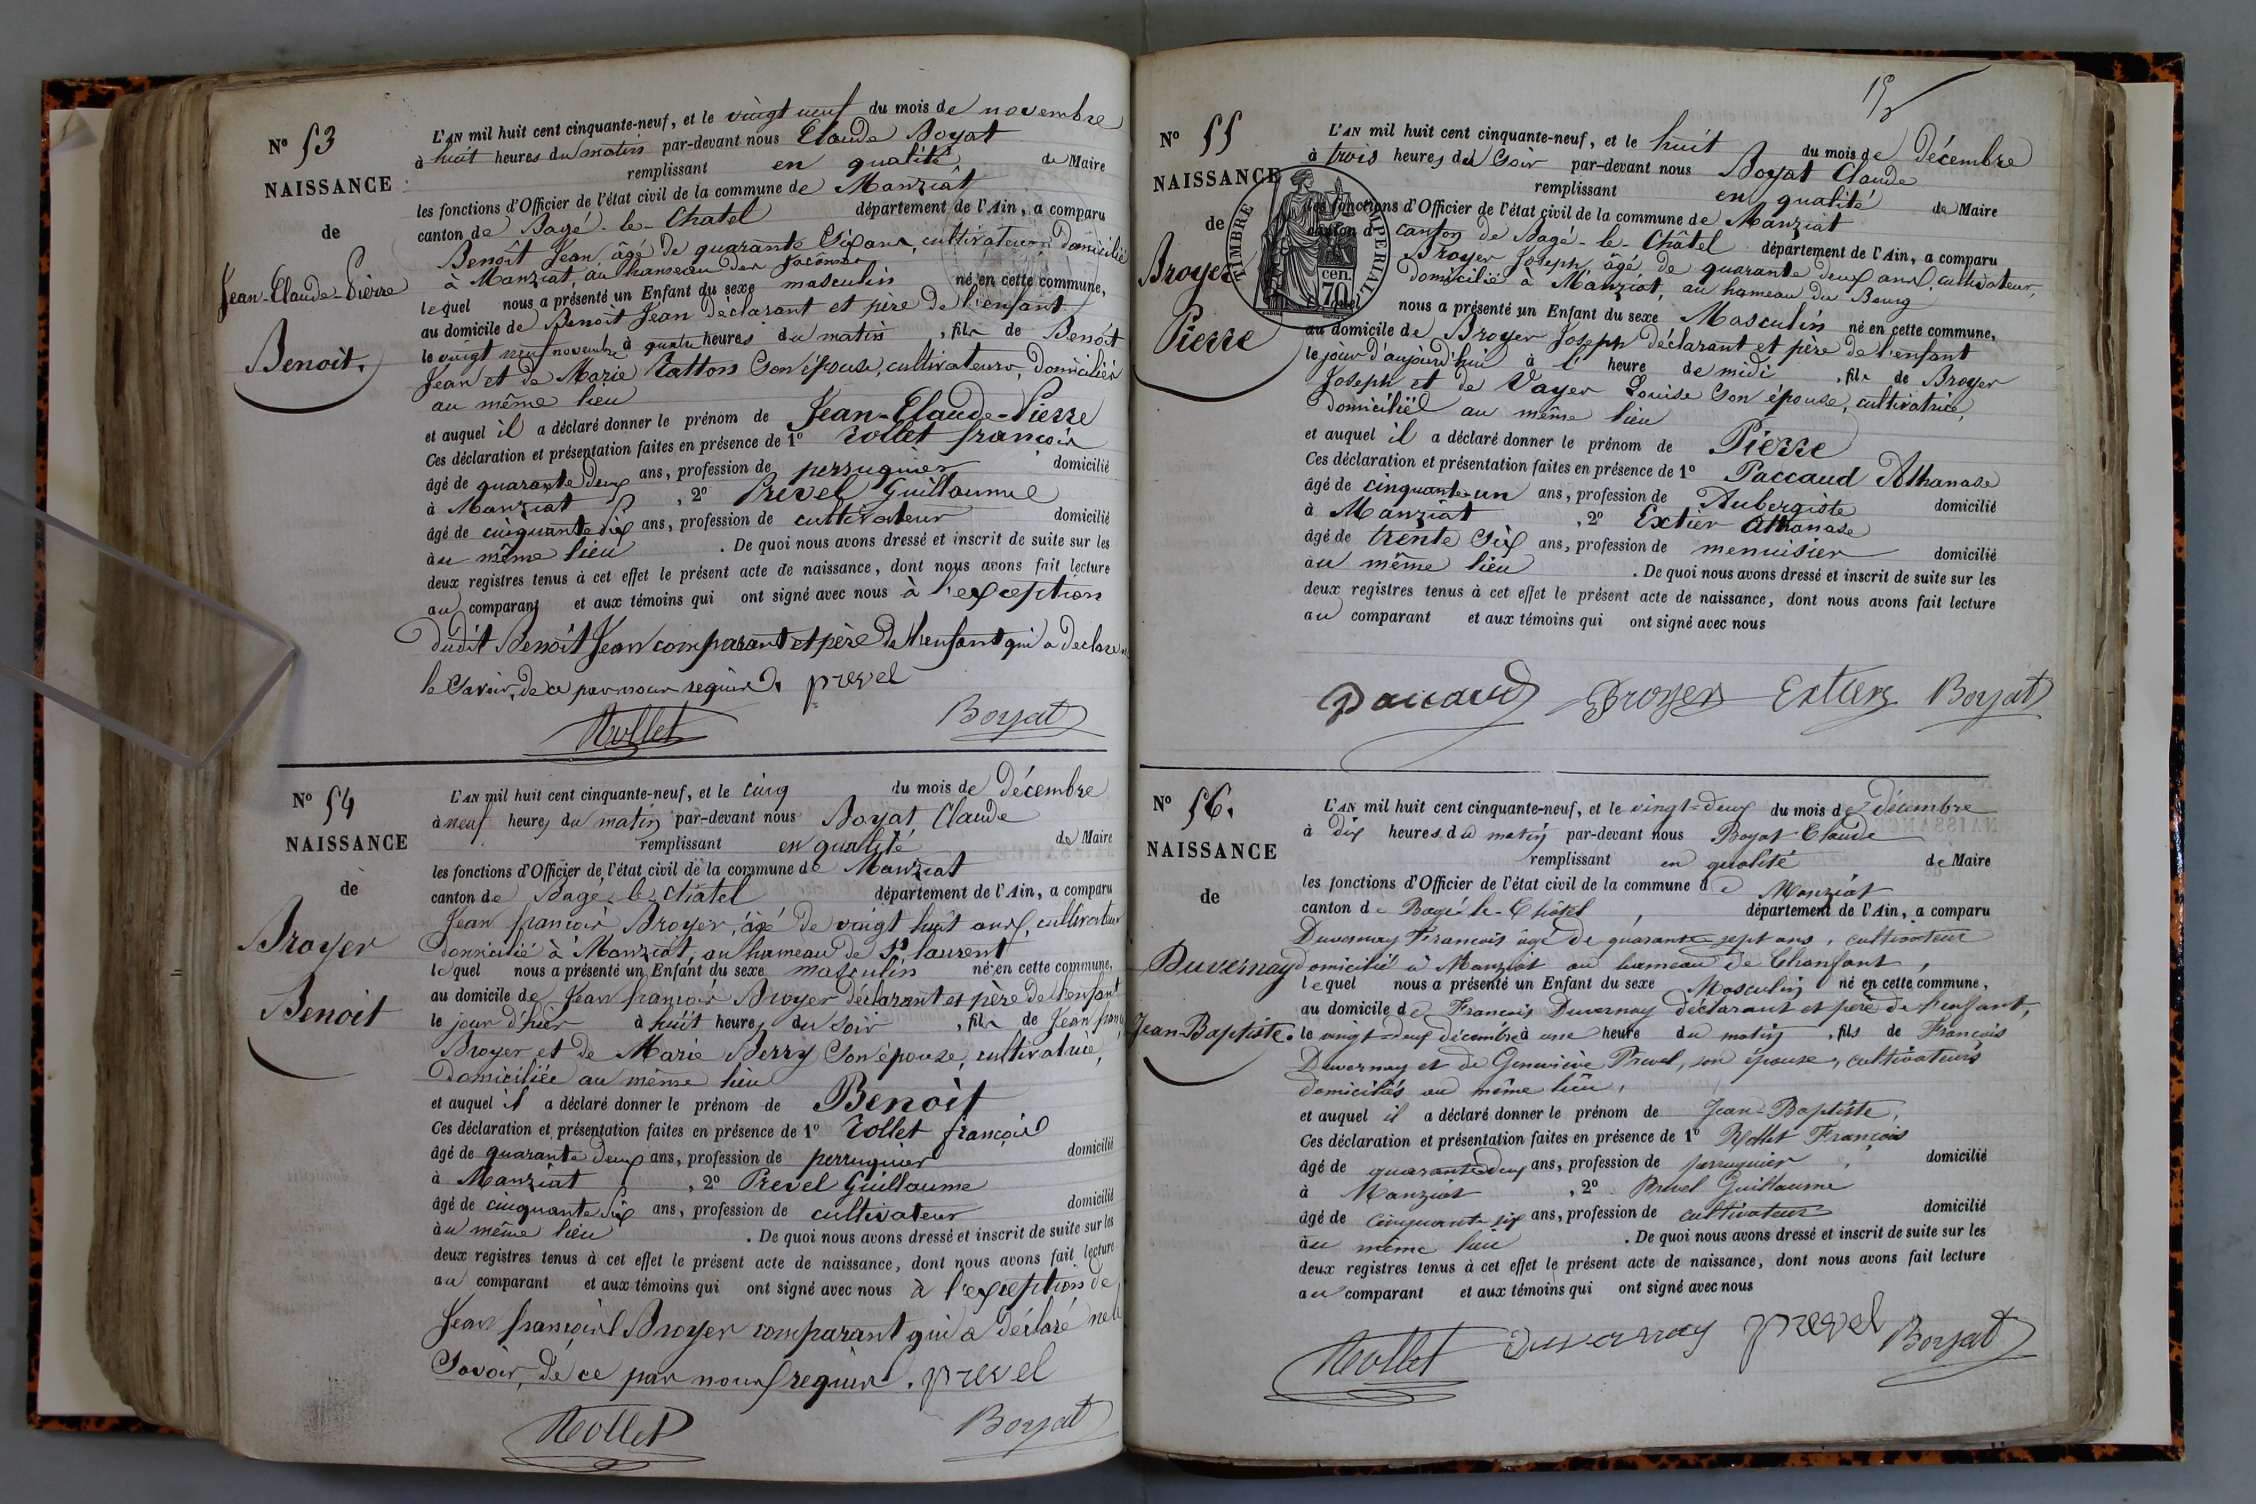 N° 53
NAISSANCE
de
Jean-Claude-Pierre
Benoit.
L'AN mil huit cent cinquante-neuf, et le vingt neuf du mois de novembre
à huit heures du matin par-devant nous Claude Boyat
remplissant en qualité de Maire
les fonctions d'Officier de l'état civil de la commune de Manziat
canton de Bagé-le-Chatel département de l'Ain, a comparu
Benoît Jean, âgé de quarante six ans, cultivateur, domicilié
à Manziat, au hameau des
lequel nous a présenté un Enfant du sexe masculin né en cette commune,
au domicile de Benoît Jean déclarant et père de l'enfant
le vingt neuf novembre à quatre heures du matin, fils de Benoît
Jean et de Marie Catton son épouse, cultivateurs, domiciliés
au même lieu
et auquel il a déclaré donner le prénom de Jean-Claude-Pierre
Ces déclaration et présentation faites en présence de 1° Rollet françois
âgé de quarante deux ans, profession de perruquier domicilié
à Manziat, 2° Prevel Guillaume
âgé de cinquante six ans, profession de cultivateur domicilié
au même lieu. De quoi nous avons dressé et inscrit de suite sur les
deux registres tenus à cet effet le présent acte de naissance, dont nous avons fait lecture
au comparant et aux témoins qui ont signé avec nous à l'exception
dudit Benoît Jean comparant et père de l'enfant qui a déclaré ne
le savoir, de ce par nous requis. prevel
Rollet Boyat
N° 54
NAISSANCE
de
Broyer
Benoit
L'AN mil huit cent cinquante-neuf, et le cinq du mois de décembre
à neuf heures du matin par-devant nous Boyat Claude
remplissant en qualité de Maire
les fonctions d'Officier de l'état civil de la commune de Manziat
canton de Bagé-le-Châtel département de l'Ain, a comparu
Jean françois Broyer, âgé de vingt huit ans, cultivateur
domicilié à Manziat, au hameau de St laurent
lequel nous a présenté un Enfant du sexe masculin né en cette commune,
au domicile de Jean françois Broyer déclarant et père de l'enfant
le jour d'hier à huit heures du soir, fils de Jean franç
Broyer et de Marie Berry son épouse, cultivatrice,
domiciliée au même lieu
et auquel il a déclaré donner le prénom de Benoît
Ces déclaration et présentation faites en présence de 1° Rollet françois
âgé de quarante deux ans, profession de perruquier domicilié
à Manziat, 2° Prevel Guillaume
âgé de cinquante six ans, profession de cultivateur domicilié
au même lieu. De quoi nous avons dressé et inscrit de suite sur les
deux registres tenus à cet effet le présent acte de naissance, dont nous avons fait lecture
au comparant et aux témoins qui ont signé avec nous à l'exception de
Jean françois Broyer comparant qui a déclaré ne le
savoir, de ce par nous requis. prevel
Rollet Boyat
N° 55
NAISSANCE
de
Broyer
Pierre
TIMBRE IMPERIAL
cen.
70
L'AN mil huit cent cinquante-neuf, et le huit du mois de décembre
à trois heures du soir par-devant nous Boyat Claude
remplissant en qualité de Maire
les fonctions d'Officier de l'état civil de la commune de Manziat
canton de canton de Bagé-le-Châtel département de l'Ain, a comparu
Broyer Joseph, âgé de quarante deux ans, cultivateur,
domicilié à Manziat, au hameau du Bourg
nous a présenté un Enfant du sexe Masculin né en cette commune,
au domicile de Broyer Joseph déclarant et père de l'enfant
le jour d'aujourd'hui à l' heure de midi, fils de Broyer
Joseph et de Vayer Louise son épouse, cultivatrice,
domicilié au même lieu
et auquel il a déclaré donner le prénom de Pierre
Ces déclaration et présentation faites en présence de 1° Paccaud Athanase
âgé de cinquante-un ans, profession de Aubergiste domicilié
à Manziat, 2° Extier Athanase
âgé de trente six ans, profession de menuisier domicilié
au même lieu. De quoi nous avons dressé et inscrit de suite sur les
deux registres tenus à cet effet le présent acte de naissance, dont nous avons fait lecture
au comparant et aux témoins qui ont signé avec nous
Paccaud Broyer Extier Boyat
N° 56.
NAISSANCE
de
Duvernay
Jean-Baptiste.
L'AN mil huit cent cinquante-neuf, et le vingt-deux du mois de décembre
à dix heures du matin par-devant nous Boyat Claude
remplissant en qualité de Maire
les fonctions d'Officier de l'état civil de la commune de Manziat
canton de Bagé-le-Châtel, département de l'Ain, a comparu
Duvernay François âgé de quarante-sept ans, cultivateur
domicilié à Manziat au hameau de Chanfant,
lequel nous a présenté un Enfant du sexe Masculin né en cette commune,
au domicile de François Duvernay déclarant et père de l'enfant,
le vingt-deux décembre à une heure du matin, fils de François
Duvernay et de Geneviève Prevel, son épouse, cultivateurs
domiciliés au même lieu,
et auquel il a déclaré donner le prénom de Jean-Baptiste,
Ces déclaration et présentation faites en présence de 1° Rollet François
âgé de quarante-deux ans, profession de perruquier, domicilié
à Manziat, 2° Prevel Guillaume
âgé de cinquante-six ans, profession de cultivateur domicilié
au même lieu. De quoi nous avons dressé et inscrit de suite sur les
deux registres tenus à cet effet le présent acte de naissance, dont nous avons fait lecture
au comparant et aux témoins qui ont signé avec nous
Rollet Duvernay prevel Boyat